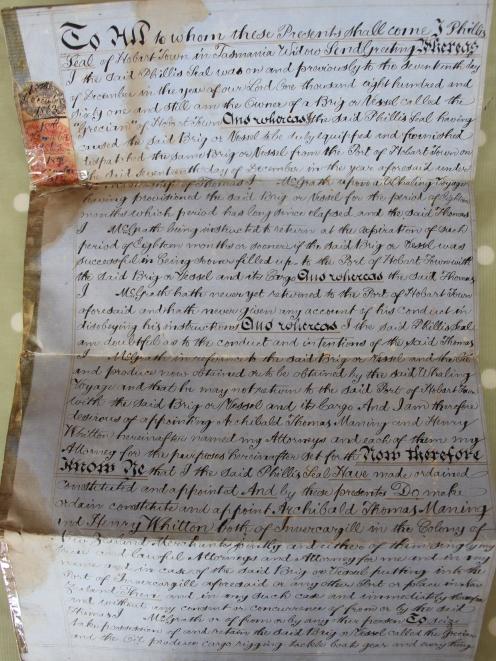 To All to whom these Presents shall come I Phillis
Seal of Hobart Town in Tasmania Widow Send Greeting Whereas
I the said Phillis Seal was on and previously to the seventeenth day
of December in the year of our Lord One thousand eight hundred and
sixty one and still am the Owner of a Brig or Vessel called the
"Grecian" of Hobart Town And whereas I the said Phillis Seal having
caused the said Brig or Vessel to be duly equipped and furnished
despatched the same Brig or Vessel from the Port of Hobart Town on
the said seventeenth day of December in the year aforesaid under
Mastership of Thomas J McGrath upon a Whaling Voyage
having provisioned the said Brig or Vessel for the period of Eighteen
months which period has long since elapsed and the said Thomas
J McGrath being instructed to return at the expiration of such
period of Eighteen months or sooner if the said Brig or Vessel was
successful in being sooner filled up to the Port of Hobart Town with
the said Brig or Vessel and its Cargo And whereas the said Thomas
J McGrath hath never yet returned to the Port of Hobart Town
aforesaid and hath never given any account of his conduct in
disobeying his instructions And whereas I the said Phillis Seal
am doubtful as to the conduct and intentions of the said Thomas
J McGrath in reference to the said Brig or Vessel and the
and produce now obtained or to be obtained by the said Whaling
Voyage and that he may not return to the said Port of Hobart Town
with the said Brig or Vessel and its Cargo And I am therefore
desirous of appointing Archibald Thomas Maning and Henry
Whitton hereinafter named my Attorneys and each of them my
Attorney for the purposes hereinafter set forth Now therefore
Know Ye that I the said Phillis Seal Have made ordained
constituted and appointed And by these presents Do make
ordain constitute and appoint Archibald Thomas Maning
and Henry Whitton both of Invercargill in the Colony of
New Zealand Merchants jointly and either of them singly my
true and lawful Attorneys and Attorney for me and in my
name and in case of the said Brig or Vessel putting into the
Port of Invercargill aforesaid or any other Port or place in New
Zealand Then and in any such case and immediately thereupon
and without any consent or concurrence of from or by the said
McGrath or of from or by any other person To seize
take possession of and retain the said Brig or Vessel called the Grecian
and the Oil produce cargo rigging tackle boats gear and everything